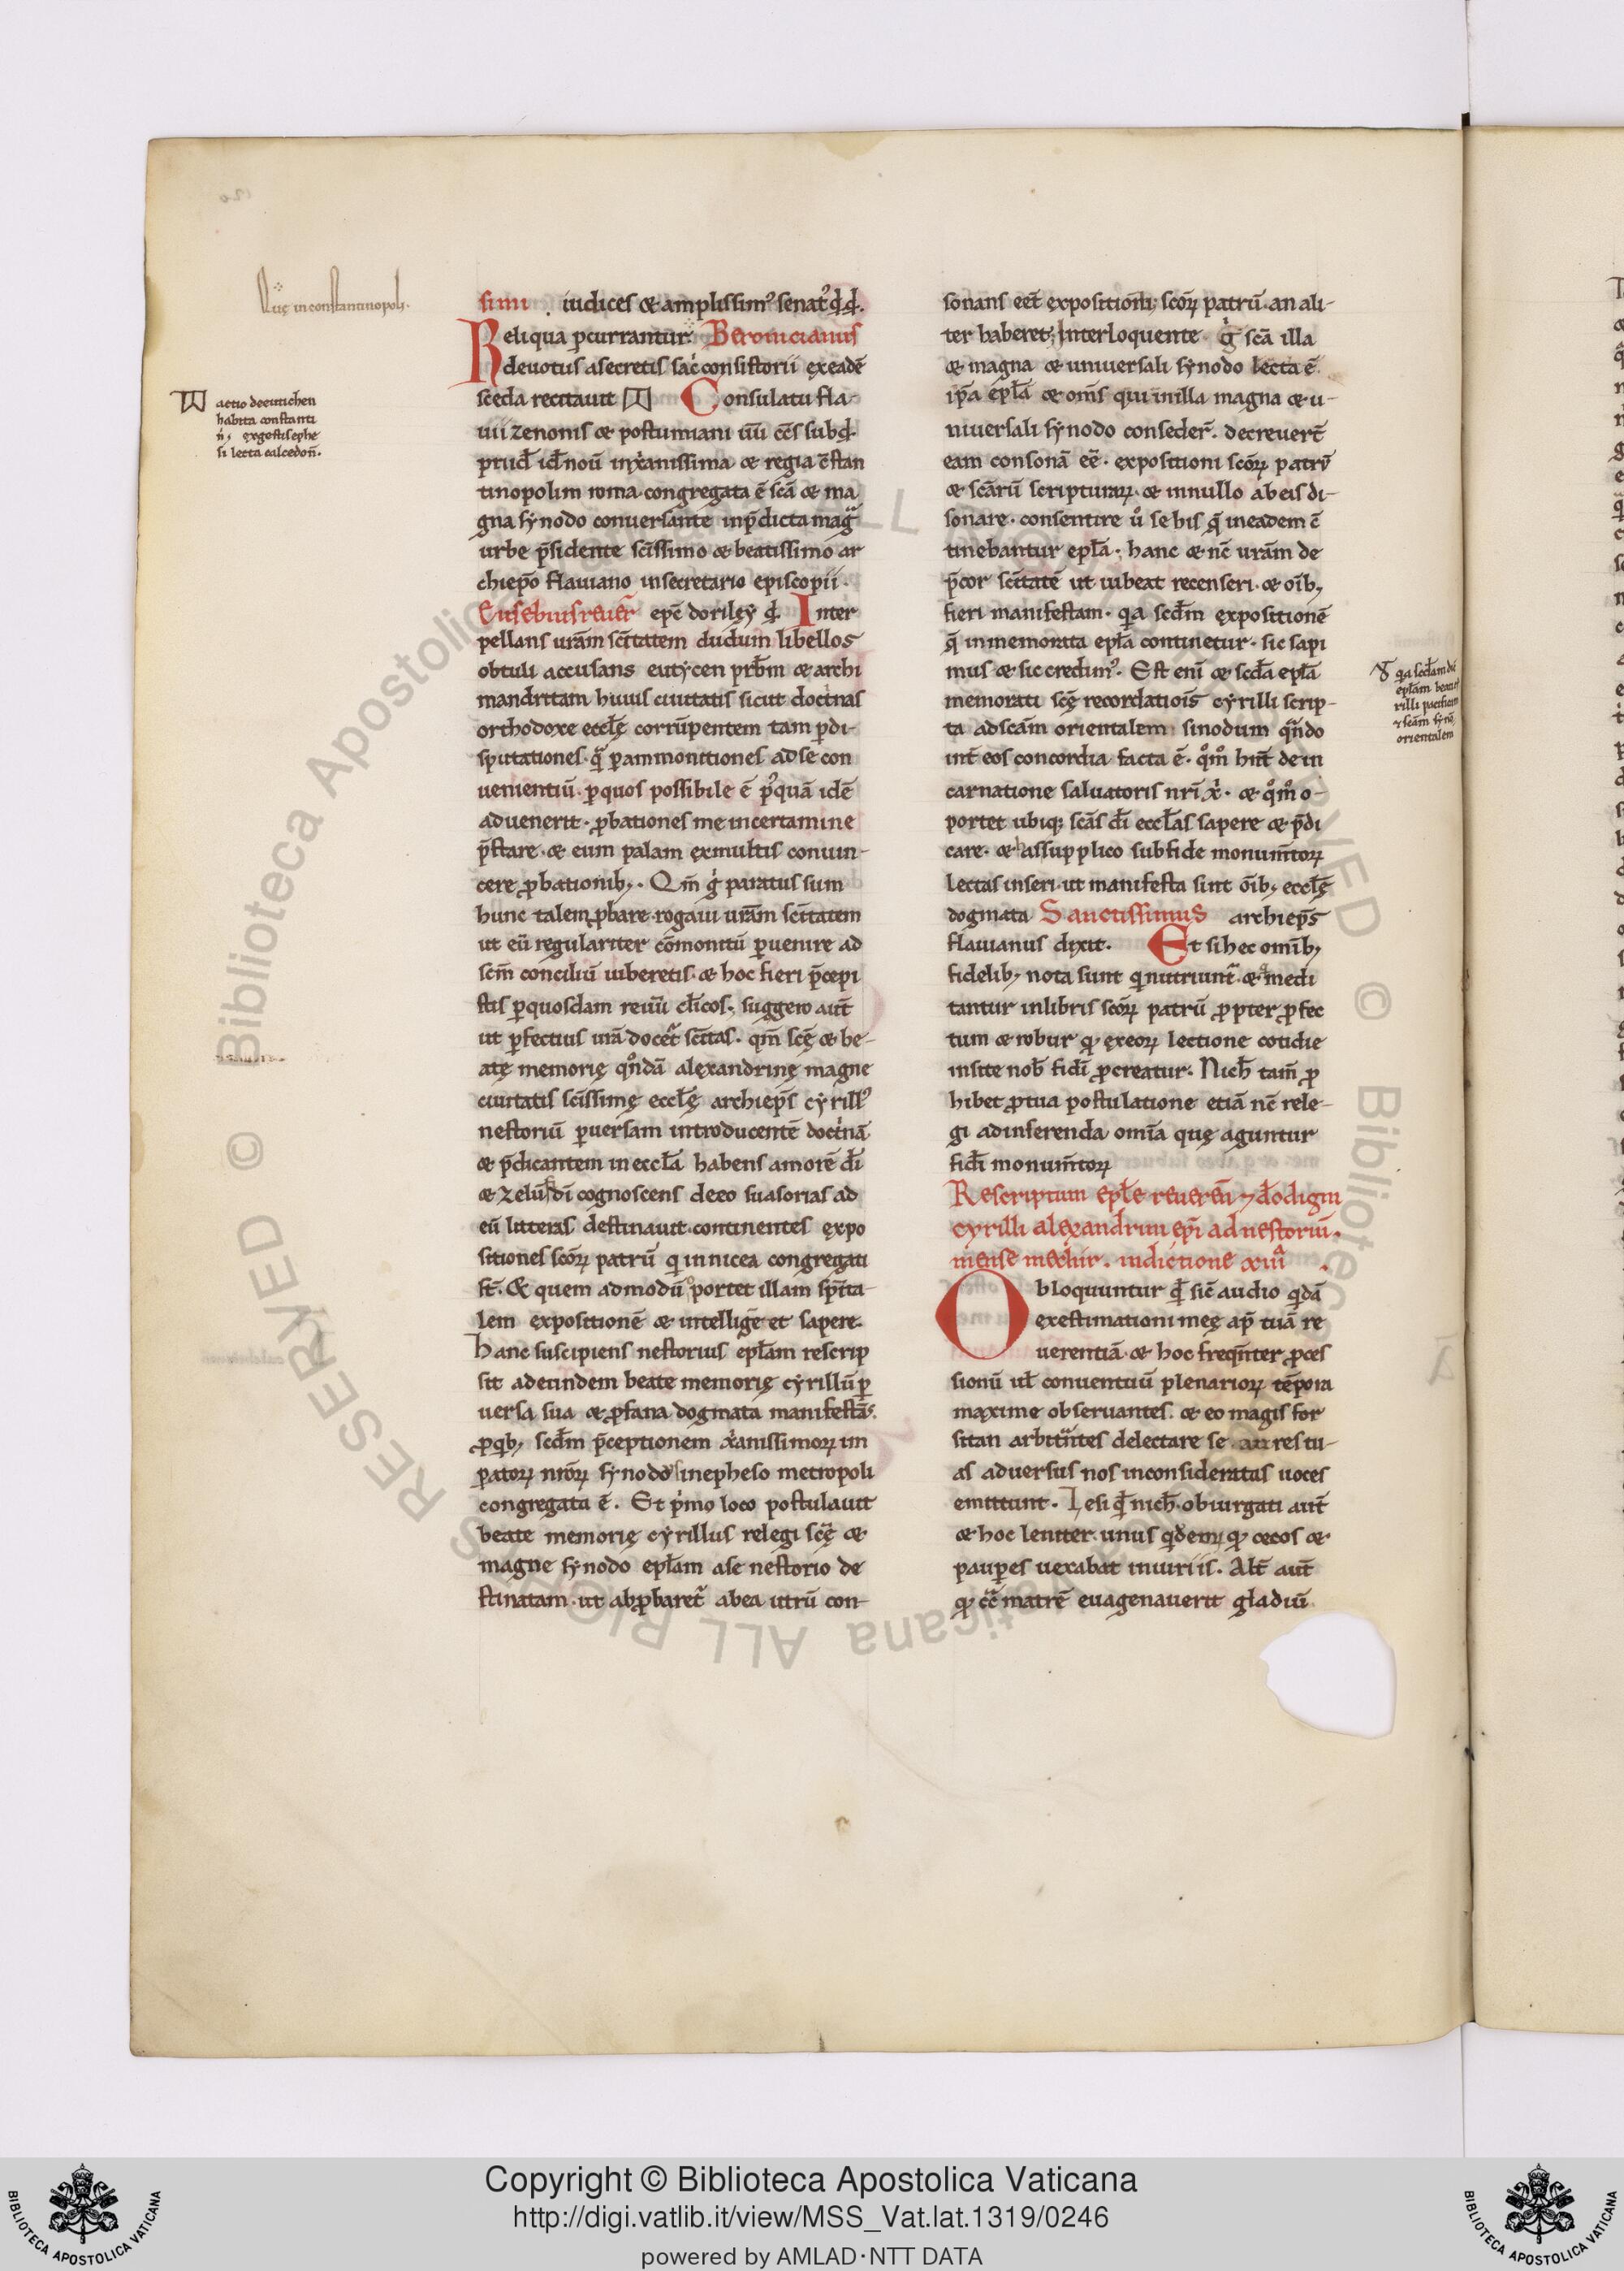 simi iudices & amplissim᷒ senat᷒ q̄d q̄d.
Reliqua ꝑcurrantur. Beronicianus
deuotus asecretis sac̄ consistorii ęxeadē
sceda recitauit Consulatu fla-
uii zenonis & postumiani uū cēs sub q̄d.
prid' id' nou̅ inx̅anissima & regia c̄stan
tinopolim roma congregata ē scā & ma
gna sẏnodo conuersante inp̄dicta mag̅
urbe p̄sidente sc̅issimo & beatissimo ar
chiep̅o flauiano insecretario episcopii.
Eusebius reuer̅ ep̅c dorilęẏ q̄d. Inter
pellans ur̅am sc̅itatem dudum libellos
obtuli accusans eutẏcen pr̅bm & archi
mandritam huius ciuitatis sicut doct̅nas
orthodoxe eccl̅ę corrūpentem tam ꝑdi-
sputationes. q̅ ꝑammonitiones adse con
uenientiū. ꝑquos possibile ē p᷒quā idē
aduenerit. ꝓbationes me incertamine
p̄stare. & eum palam ęxmultis conuin-
cere ꝓbationib;. Qm̅ g̊ paratus sum
hunc talem ꝓbare rogaui ur̅am sc̅itatem
ut eū regulariter cōmonitū ꝑuenire ad
sc̅m conciliū iuberetis. & hoc fieri p̄cepi
stis ꝑquosdam reuū cl̅icos; suggero aut̅
ut ꝑfectius ur̅a docet᷑ sc̅itas. qm̅ sc̅ę & be-
atę memorię qn̊dā alęxandrinę magne
ciuitatis sc̅issimę eccl̅ę archiep̅s cẏrill᷒
nestoriū ꝑuersam introducentē doct̅nā
& p̄dicantem in eccl̅a habens amorē dī
& zelū dī cognoscens deeo suasorias ad
eū litteras destinauit continentes expo
sitiones sc̅oꝝ patrū q in nicea congregati
st̅. & quem admodū oportet illam sp̅ita
lem expositionē & intelligēet sapere.
Hanc suscipiens nestorius epl̅am rescrip
sit adeundem beate memorię cẏrillū ꝑ
uersa sua & ꝓfana dogmata manifestās.
ꝓqb; scd̅m p̄ceptionem x̅anissimoꝝ im
ꝑatoꝝ nr̅oꝝ sẏnodo inepheso metropoli
congregata ē. Et p̅mo loco postulauit
beate memorię cẏrillus relegi sc̅ę &
magne sẏnodo epl̅am ase nestorio de
stinatam. ut abꝓbaret᷑ abea utrū con-
sonans eēt expositioni; sc̅oꝝ patrū. an ali-
ter haberet; Interloquente g̊ sc̅a illa
& magna & uniuersali sẏnodo lecta ē
ip̅a epl̅a & om̅s qui inilla magna & u-
niuersali sẏnodo conseder̅. decreuer̅t
eam consonā eē. expositioni sc̅oꝝ patrū
& sc̅arū scripturaꝝ. & innullo ab eis di-
sonare. consentire ů se his q̅ ineadem c̄
tinebantur epl̅a; hanc & nc̅ ur̅am de
p̄cor sc̅itatē ut iubeat recenseri. & oi̅b;
fieri manifestam. qa scd̅m expositionē
q̅ inmemorata epl̅a continetur. sic sapi
mus & sic credim᷒. Est enī & scd̅a epl̅a
memorati sc̅ę recordatiōis cẏrilli scrip-
ta adsc̅am orientalem sinodum qn̅do
int̅ eos concordia facta ē. qm̊ hn̅t dein
carnatione saluatoris nr̅i x̅. & qm̊ o-
portet ubiq; sc̅as dī eccl̅as sapere & p̄di
care. & has supplico subfide monum̅toꝝ
lectas inseri. ut manifesta sint oi̅b; eccl̅ę
dogmata Sanctissimus archiep̅s
flauianus dixit. Et si hec omib;
fidelib; nota sunt qnutriunt᷑. & medi
tantur inlibris sc̅oꝝ patrū ꝓpter ꝓfec
tum & robur ꝙ ęxeoꝝ lectione cotidie
insite nob̅ fidī ꝓcreatur. Nich̅ tam̅ ꝓ
hibet ꝓtua postulatione etiā nc̅ rele-
gi adinserenda om̅ia quę aguntur
fidī monum̅toꝝ
Rescriptum epl̅e reueren̅ ⁊ d̅odigni
cyrilli alęxandrini ep̅i ad nestoriū.
mense mechir. indictione xiiii.
Obloquuntur q̅d sic̅ audio qdā
exestimationi meę ap̅ tuā re
uerentiā. & hoc freqn̅ter ꝓces
sionū ul̅ conuentuū plenarioꝝ tēpora
maxime obseruantes. & eo magis for
sitan arbit̅ntes delectare se aures tu-
as aduersus nos inconsideratas uoces
emittunt. Lesi q̅d nich̅. obiurgati aut̅
& hoc leniter. unus qdem; ꝙ cecos &
pauꝑes uexabat iniuriis. Alt̅ aut̅
ꝙ cc̅ matrē euagenauerit gladiū
Luię inconstantinopoli.
actio deeutichen
habita constanti
n̄; exgestis ephe
si lecta calcedon̄.
qa secdam
epl̅am beati
rilli
⁊ scam sẏn̅
orientalem
Copyright © Biblioteca Apostolica Vaticana
http://digi.vatlib.it/view/MSS_Vat.lat.1319/0246
powered by AMLAD·NTT DATA
BIBLIOTECA APOSTOLICA VATICANA
BIBLIOTECA APOSTOLICA VATICANA
© Biblioteca Apostolica Vaticana ALL RIGHTS RESERVED